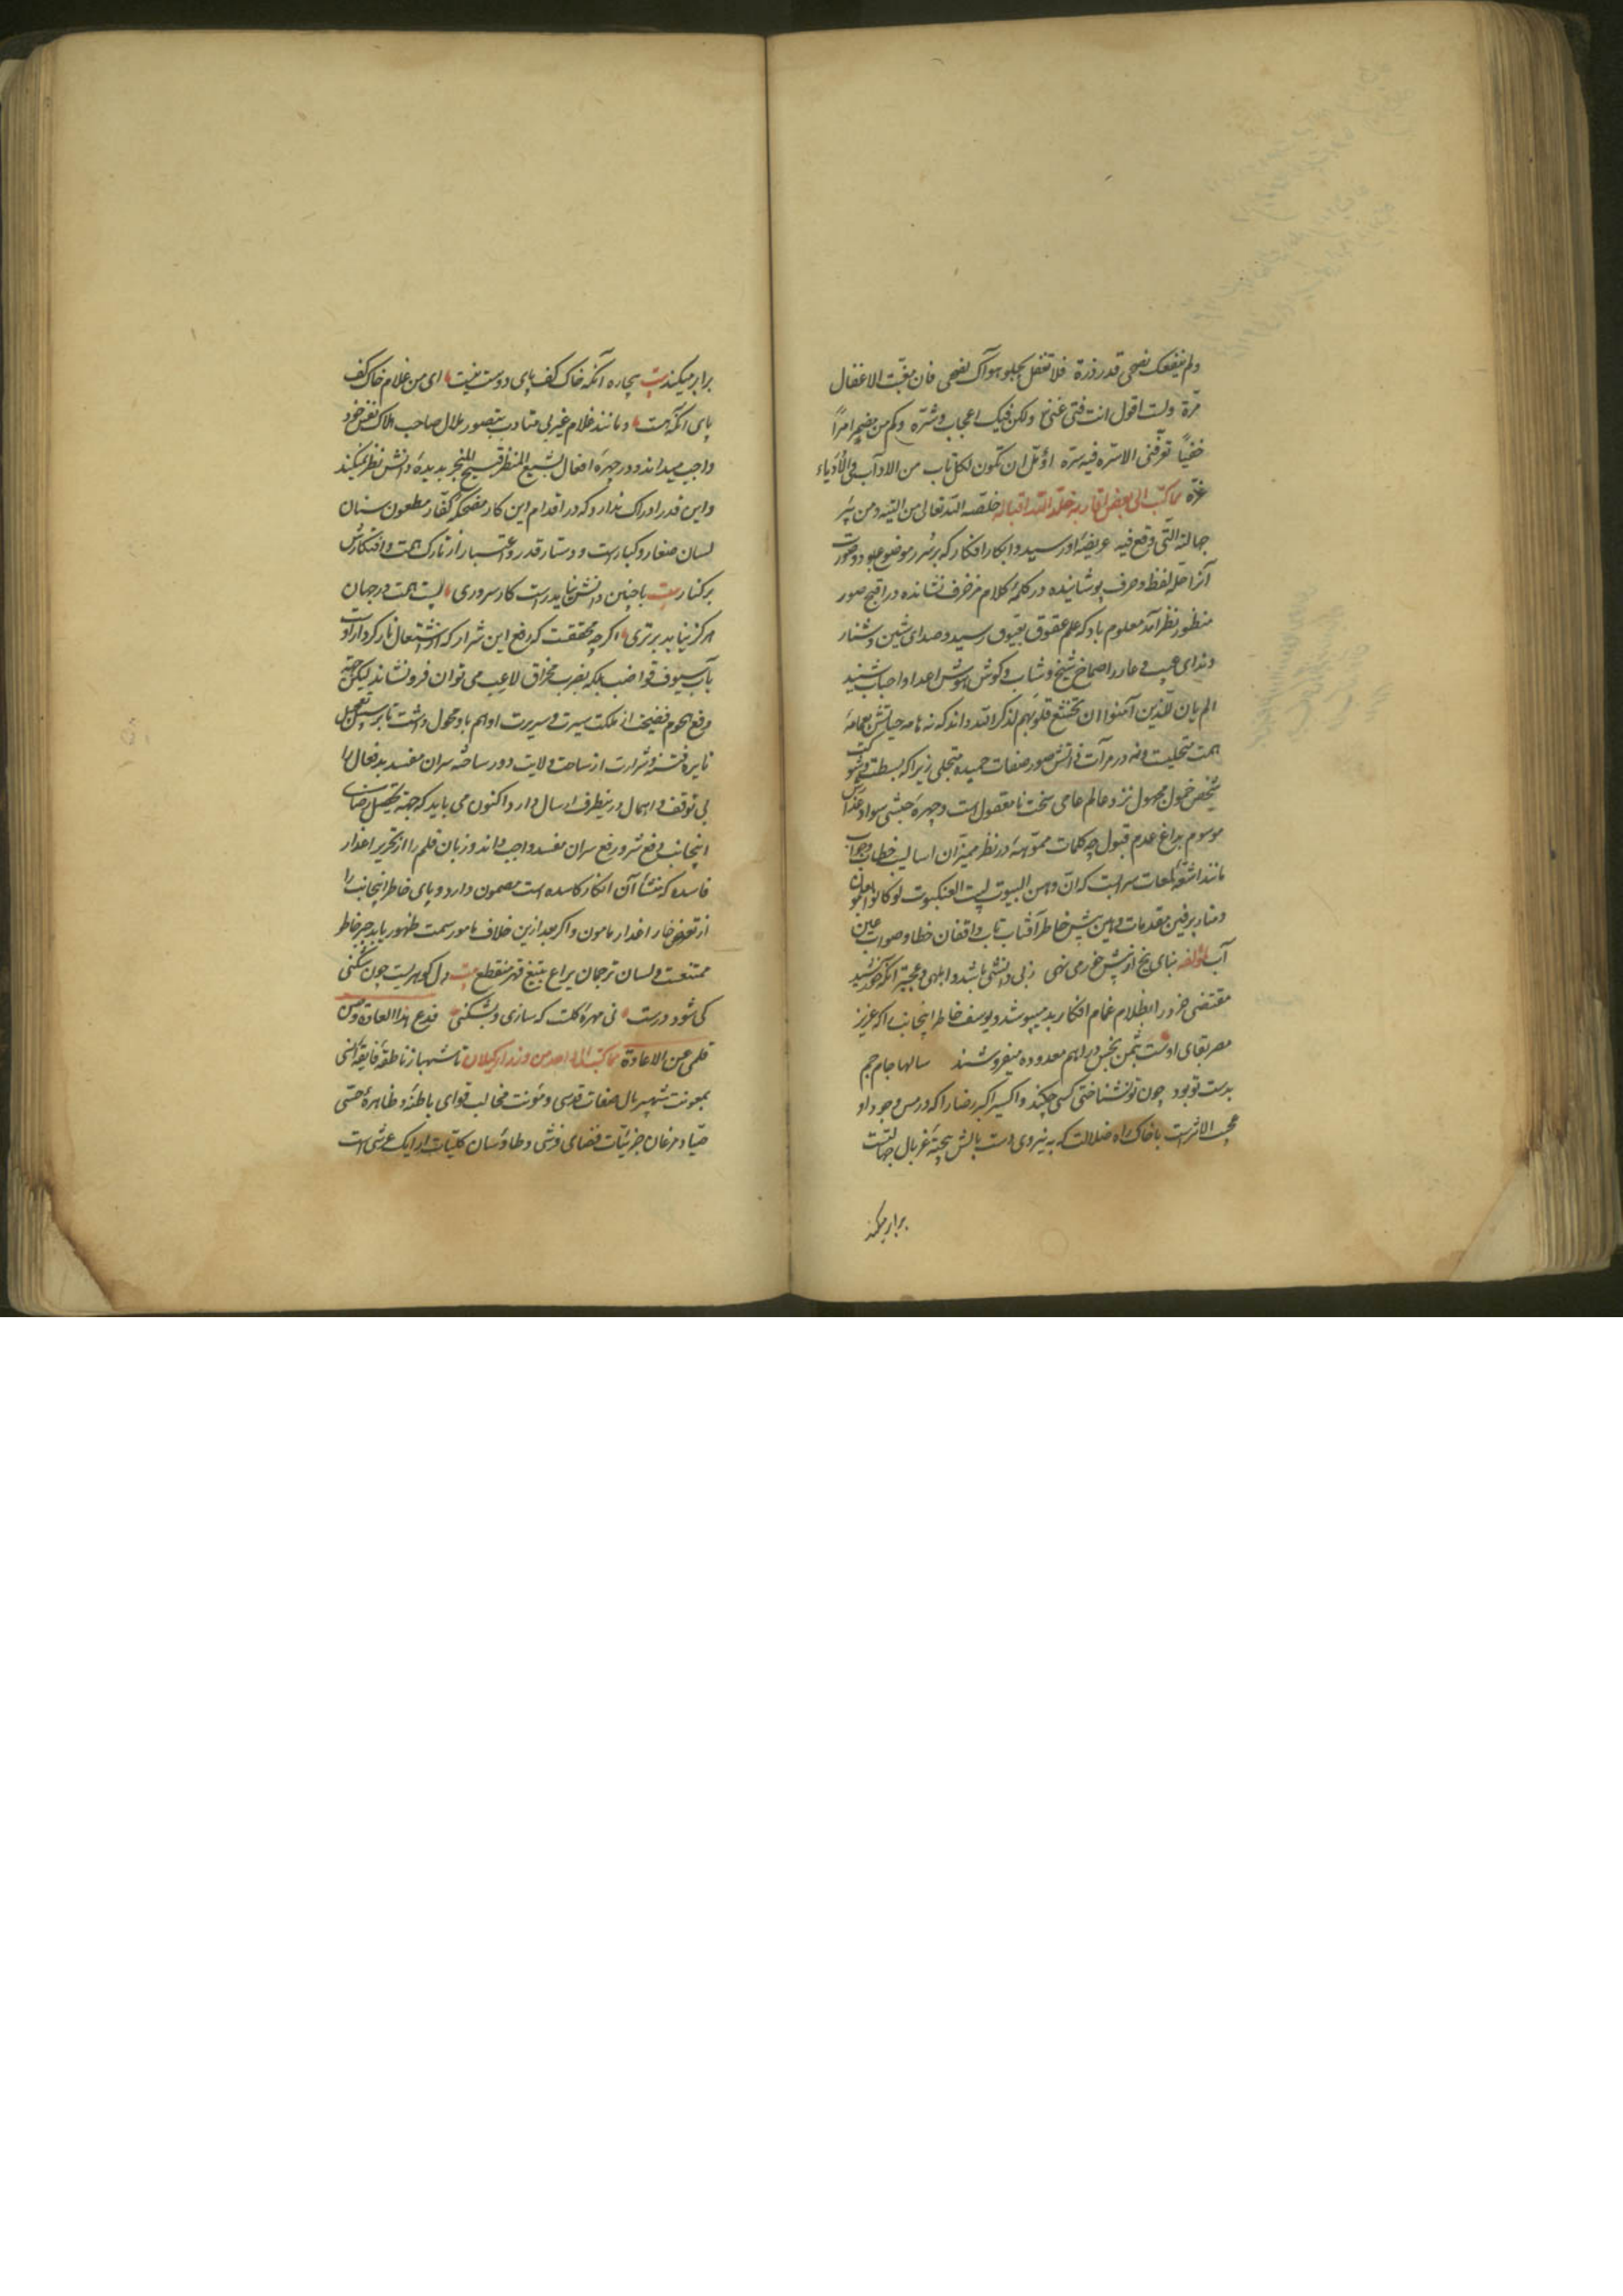 ولم ینفعک نصحی قدر ذرة فلا تغفل بحلو هواک نصحی فان مغبت الاغفال
مرّة ولست اقول انت فتی غنیّ ولکن فیک اعجاب وشرّة وکم من مضمر امراً
خفیّاً توفّنی الاسرّه فیه سرّه اؤمّل ان تکون لکل ناب من الاداب فی الأدباء
غرّة مما کتب الی بعض اقاربه خلّد الله اقباله خلّصه الله تعالی من التیه ومن بئر
جهالته التی وقع فیه عریضهٔ او رسید وابکار افکار که بر سرر موضوع جلوه دو صورت
آنرا حلّه لفظ وحرف پوشانیده در کلهٔ کلام مزخرف نشانده در اقبح صور
منظور نظر آمد معلوم باد که علم عقوق بعیوق رسید وصدای شین وشنار
وندای عیب وعار در اصماخ شیخ وشاب وگوش هوش اعدا واحباب شنید
الم یان للذین آمنوا ان تخشع قلوبهم لذکر الله داند که نه هامه حیاتش بعمامهٔ
همت متحلیست ونه در مرآت ذاتش صور صفات حمیده متجلی زیرا که بسطت وشوکت
شخص خمول مجهول نزد عالم عامی سخت نامعقول است وچهرهٔ حبشی سواد عذارش
موسوم بداغ عدم قبول چه کلمات مموّهه در نظر ممیزان اسالیب خطاب وجواب
مانند اشعهٔ لمعات سرابست که ان وهن البیوت لبیت العنکبوت لو کانوا یعلمون
ومناد برفین مقدمات واهن پیش خاطر آفتاب تاب واقفان خطا وصواب عین
آب لمؤلفه بنای یخ از پیش خور می نهی زبی دانشی باشد وابلهی وعجبتر آنکه خورشید
مقتضی خرد را بظلام غمام افکار بد میپوشد ویوسف خاطر اینجانب را که عزیز
مصر بقای اوست بثمن بخس دراهم معدوده میفروشد سالها جام جم
بدست تو بود چون تو نشناختی کسی چکند واکسیر اکبر رضا را که در مس وجود او
عجب الاثر است با خاک راه ضلالت که به نیروی دست بالش بیخته غربال جهالتست
برابر میکند
برابر میکند بیت بیچاره آنکه خاک کف پای دوست نیست ای من غلام خاک کف
پای آنکه هست ومانند غلام غیر متادب بتصور ملال صاحب هلاک نفس خود
واجب میداند ودر چهرهٔ افعال بشیع المنظر قبیح المخبر بدیدهٔ دانش نظر نمیکند
واین قدر ادراک ندارد که در اقدام این کار مضحکهٔ کفار ومطعون سنان
لسان صغار وکبارست ودستار قدر واعتبار از تارک همت وافتکارش
بر کنار بیت با چنین دانش نیاید راست کار سروری پست همت در جهان
هرگز نیابد برتری اگر چه محققست که رفع این شرار که از اشتعال نار کردار اوست
بآب سیوف قواضب بلکه بضرب مخراق لاعب می توان فرو نشاند لیکن جهة
دفع هجوم فضیحت از ملکت سیرت وسریرت او اهم باو محول داشت تا بر سبیل تعجیل
نایرهٔ فتنه وشرارت از ساحت ولایت دور ساخته سران مفسد بد فعال را
بی توقف واهمال درینطرف ارسال دارد اکنون می باید که جهة تحصیل رضای
اینجانب دفع شر ورفع سران مفسد واجب داند وزبان قلم را از تحریر اعذار
فاسده که منشأ آن افکار کاسده است مصون دارد وپای خاطر اینجانب را
از تعرض خار اعذار مامون واگر بعد ازین خلاف مامور سمت ظهور یابد جبر خاطر
ممتنعست ولسان ترجمان یراع بتیغ قهر منقطع بیت دل گوهریست چون شکنی
کی شود درست نی مهرهٔ گلست که سازی وبشکنی فدع هذا العادة وصن
قلمی عن الاعادة مما کتب الی احد من وزراء گیلان تا شهباز ناطقهٔ فایقهٔ انسی
بمعونت شهپر بال صفات قدسی ومؤنت مخالب قوای باطنهٔ وظاهرهٔ حسّی
صیّاد مرغان جزئیات فضای فرشی وطاوسان کلیّات ارایک عرشی است